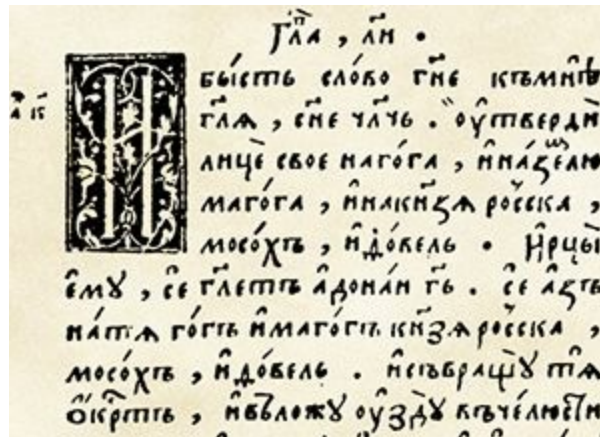 Гла҃, ли҃ .
И бы́сть сло́во гн҃е къмнѣ̀
гл҃я, сн҃е чл҃чь . оу҆твердѝ
лицѐ свое нагога, и҆на́землю
маго́га, и҆накн҃зя ро́сска,
мосо́хъ, и҆до́вель . И҆рцы̀
е҆му, се҆ гл҃етъ а҆донаи гь҃ . се҆ а҆зъ
на́тя го́гъ и҆маго́гъ кн҃зя ро́сска,
мосо́хъ, и҆до́вель . и҆събращу тя
о҆́крт҃ъ, и҆въложу оу҆зду въче́люсти